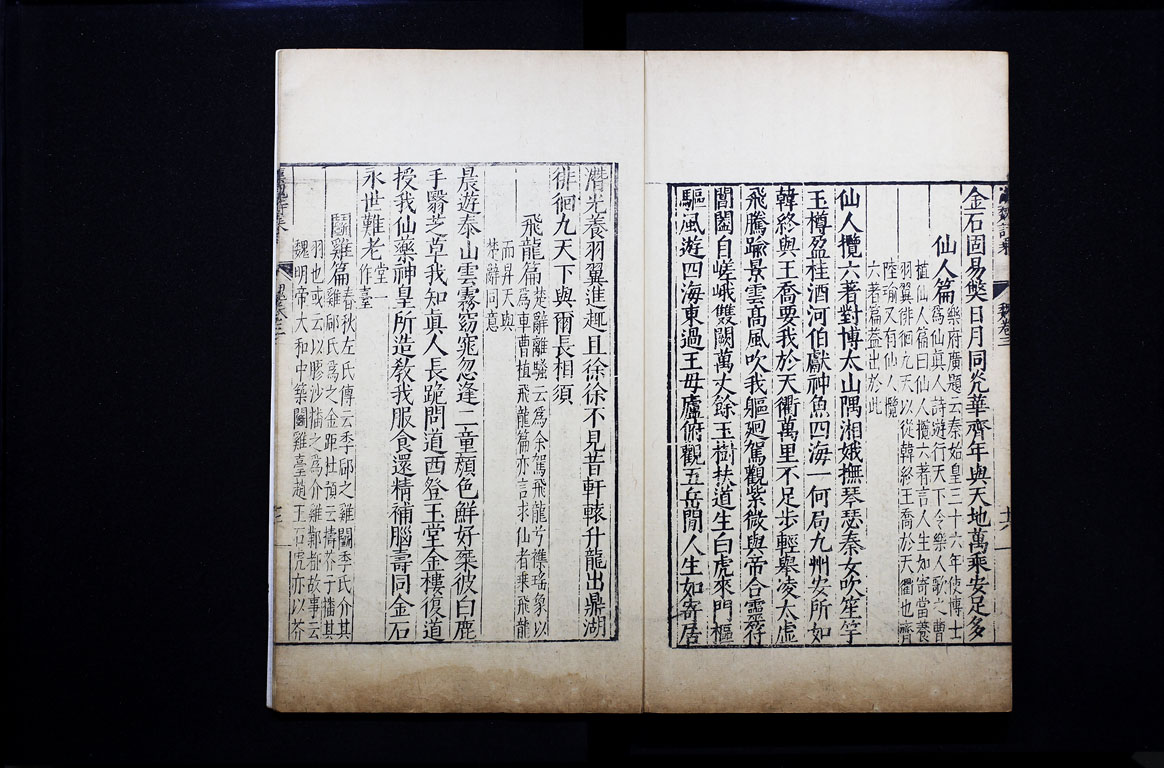 金石固易獘日月同光華齊年與天地萬乘安足多
仙人篇
樂府廣題云秦始皇三十六年使博士
爲仙真人詩遊行天下令樂人歌之曹
植仙人篇曰仙人攬六著言人生如寄當養
羽翼徘徊九天以從韓終王喬於天衢也齊
陸瑜又有仙人攬
六著篇蓋出於此
仙人攬六著對博太山隅湘娥撫琴瑟秦女吹笙竽
玉樽盈桂酒河伯獻神魚四海一何局九州安所如
韓終與王喬要我於天衢萬里不足步輕舉凌太虛
飛騰踰景雲高風吹我軀廻駕觀紫微與帝合靈符
閶闔自嵯峨雙闕萬丈餘玉樹扶道生白虎來門樞
驅風遊四海東過王母廬俯觀五岳間人生如寄居
潛光養羽翼進趣且徐徐不見昔軒轅升龍出鼎湖
徘徊九天下與爾長相須
飛龍篇
楚辭離騷云爲余駕飛龍兮雜瑤象以
爲車曹植飛龍篇亦言求仙者乘飛龍
而昇天與
楚辭同意
晨遊泰山雲霧窈窕忽逢二童顔色鮮好乘彼白鹿
手翳芝草我知真人長跪問道西登玉堂金樓復道
授我仙藥神皇所造教我服食還精補腦壽同金石
永世難老
堂一
作臺
鬭雞篇
春秋左氏傳云季郈之雞鬭季氏介其
雞郈氏爲之金距杜預云擣芥子播其
羽也或云以膠沙播之爲介雞鄴都故事云
魏明帝大和中築鬭雞臺趙王石虎亦以芥